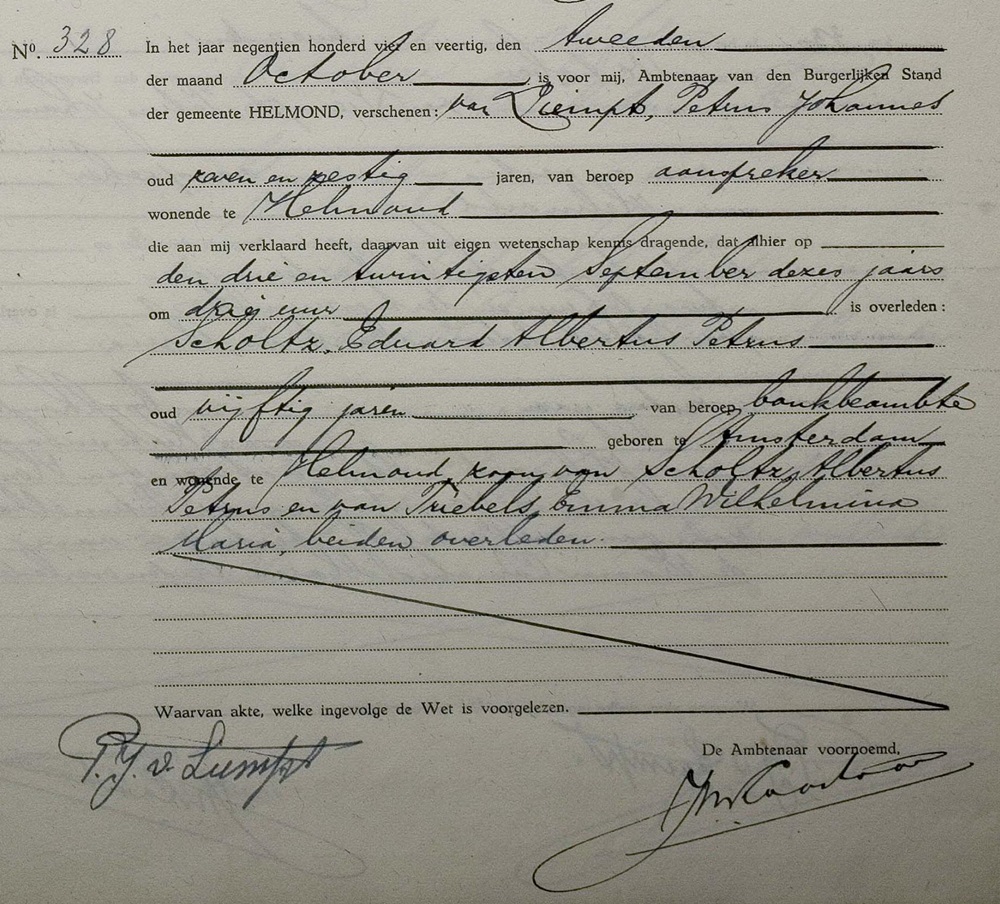 Nº. 328 In het jaar negentien honderd vier en veertig, den tweeden
der maand October is voor mij, Ambtenaar van den Burgerlijken Stand
der gemeente HELMOND, verschenen: van Liempt, Petrus Johannes
oud zeven en zestig jaren, van beroep aanspreker
wonende te Helmond
die aan mij verklaard heeft, daarvan uit eigen wetenschap kennis dragende, dat alhier op
den drie en twintigsten September dezes jaars
om drie uur is overleden:
Scholtz, Eduard Albertus Petrus
oud vijftig jaren van beroep bankbeambte
geboren te Amsterdam
en wonende te Helmond, zoon van Scholtz, Albertus
Petrus en van Triebels, Emma Wilhelmina
Maria, beiden overleden.
Waarvan akte, welke ingevolge de Wet is voorgelezen.
De Ambtenaar voornoemd,
P. J. v. Liempt